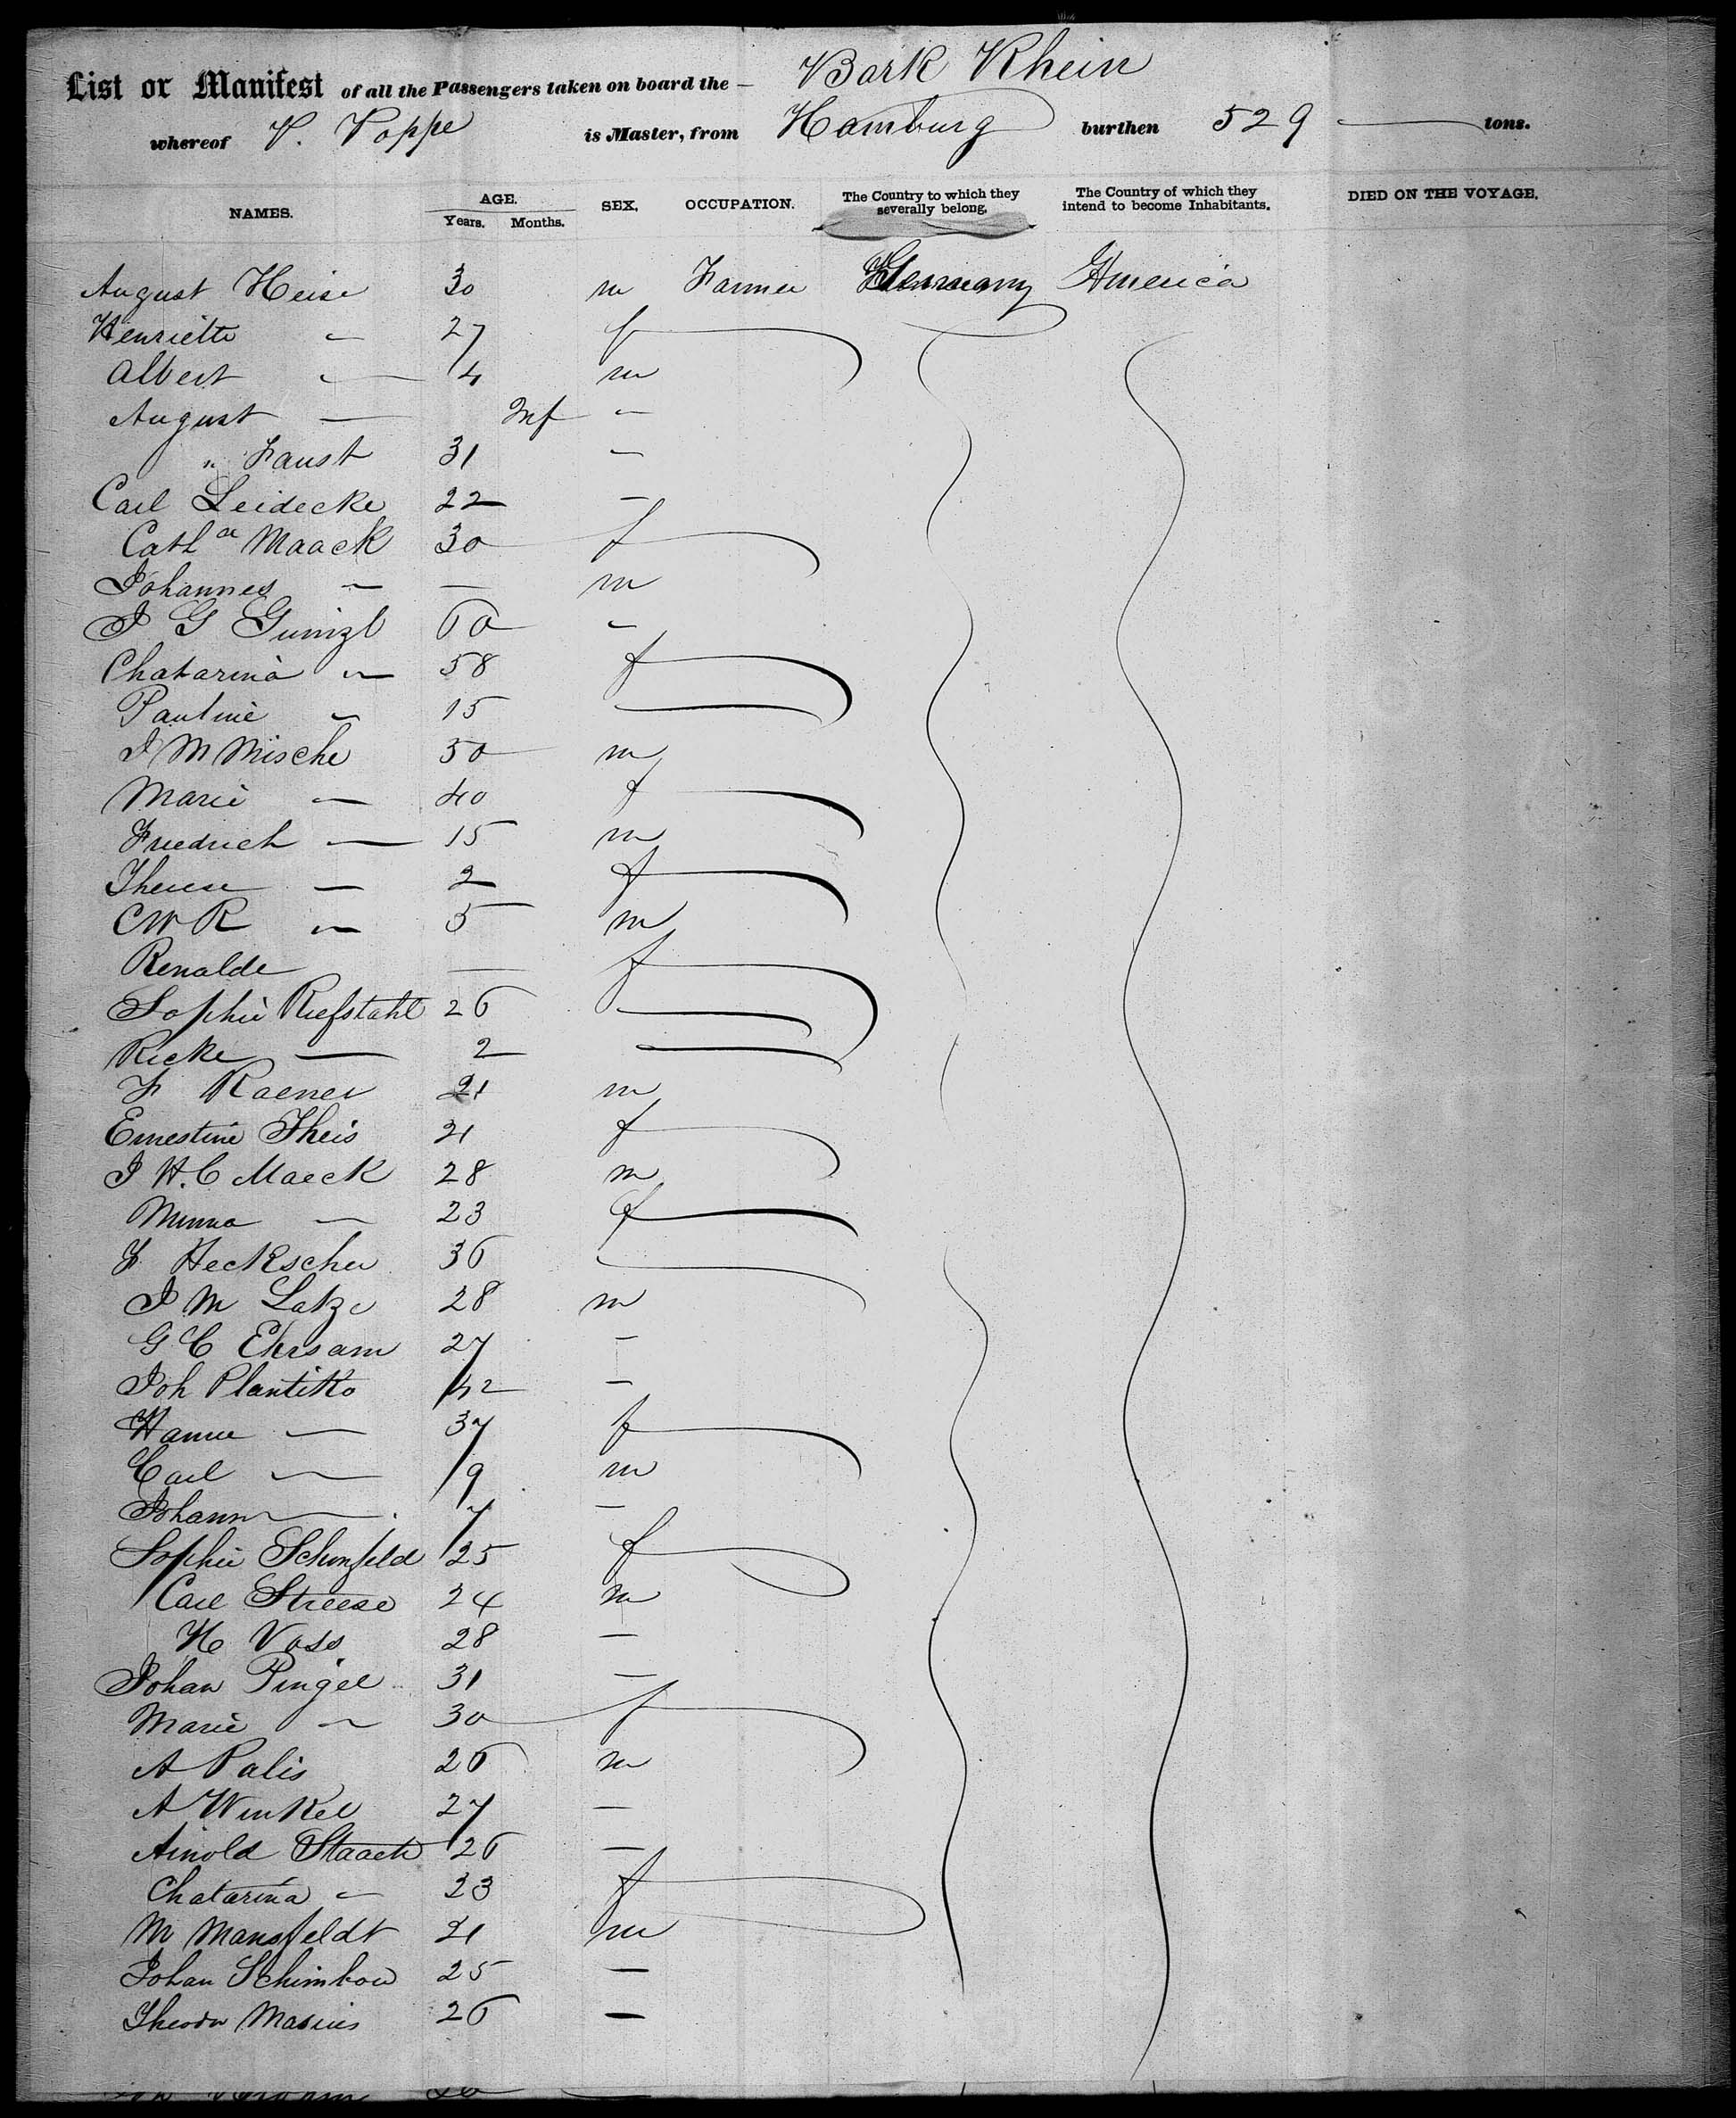 List or Manifest of all the Passengers taken on board the Bark Rhein
whereof P. Poppe is Master, from Hamburg burthen 529 tons.
NAMES. AGE. Years. Months. SEX. OCCUPATION. The Country to which they severally belong. The Country of which they intend to become Inhabitants. DIED ON THE VOYAGE.
August Heise 30 m Farmer Germany America
Henriette — 27 f
Albert — 4 m
August — Inf —
" Faust 31 —
Carl Leidecke 22 —
Cath.a Maack 30 f
Johannes — — m
J G Gumzl 60 —
Chatarina — 58 f
Pauline — 15
J M Mische 50 m
Marie — 40 f
Friedrich — 15 m
Therese — 2 f
C W R — 5 m
Renalde — f
Sophie Riefstahl 26
Ricke — 2
F Raener 21 m
Ernestine Theis 21 f
J H. C Maeck 28 m
Minna — 23 f
F Heckscher 36
J M Latze 28 m
G C Ehrsam 27 —
Joh Plantiko 42 —
Hanne — 37 f
Carl — 9 m
Johann — 7 —
Sophie Schonfeld 25 f
Carl Streese 24 m
H Voss 28 —
Johan Pingel 31 —
Marie — 30 f
A Palis 26 m
A Winkel 27 —
Arnold Staack 26 —
Chatarina — 23 f
M Mansfeldt 21 m
Johan Schimbow 25 —
Theodor Masius 26 —